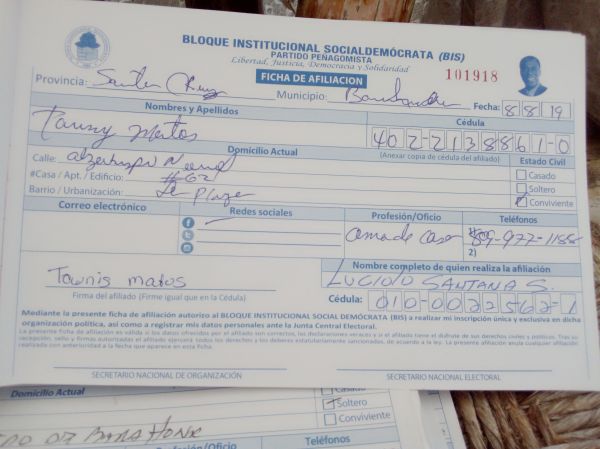 BLOQUE INSTITUCIONAL SOCIALDEMÓCRATA (BIS)
PARTIDO PEÑAGOMISTA
Libertad, Justicia, Democracia y Solidaridad
FICHA DE AFILIACION
101918
Provincia:
Municipio:
Fecha: 8 8 19
Nombres y Apellidos
Cédula
Matos
402-2213886 1-0
Domicilio Actual
(Anexar copia de cédula del afiliado)
Estado Civil
Calle:
#Casa / Apt. / Edificio: #62
Barrio / Urbanización: La playa
Casado
Soltero
Conviviente
Correo electrónico
Redes sociales
Profesión/Oficio
Teléfonos
ama de casa
1) 809-977-1155
2)
Nombre completo de quien realiza la afiliación
LUCIDIO SANTANA S.
Townis matos
Firma del afiliado (Firme igual que en la Cédula)
Cédula: 010-0022562-1
Mediante la presente ficha de afiliación autorizo al BLOQUE INSTITUCIONAL SOCIAL DEMÓCRATA (BIS) a realizar mi inscripción única y exclusiva en dicha
organización política, así como a registrar mis datos personales ante la Junta Central Electoral.
La presente ficha de afiliación es válida si los datos ofrecidos por el afiliado son correctos, las declaraciones veraces y si el afiliado tiene el disfrute de sus derechos civiles y políticos. Tras su
recepción, sello y firmas autorizadas el afiliado ejercerá todos los derechos y los deberes estatutariamente sancionados, de acuerdo a la ley. La presente afiliación anula cualquier afiliación
realizada con anterioridad a la fecha que aparece en esta ficha.
SECRETARIO NACIONAL DE ORGANIZACIÓN
SECRETARIO NACIONAL ELECTORAL
Domicilio Actual
Casado
Soltero
Conviviente
Profesión/Oficio
Teléfonos